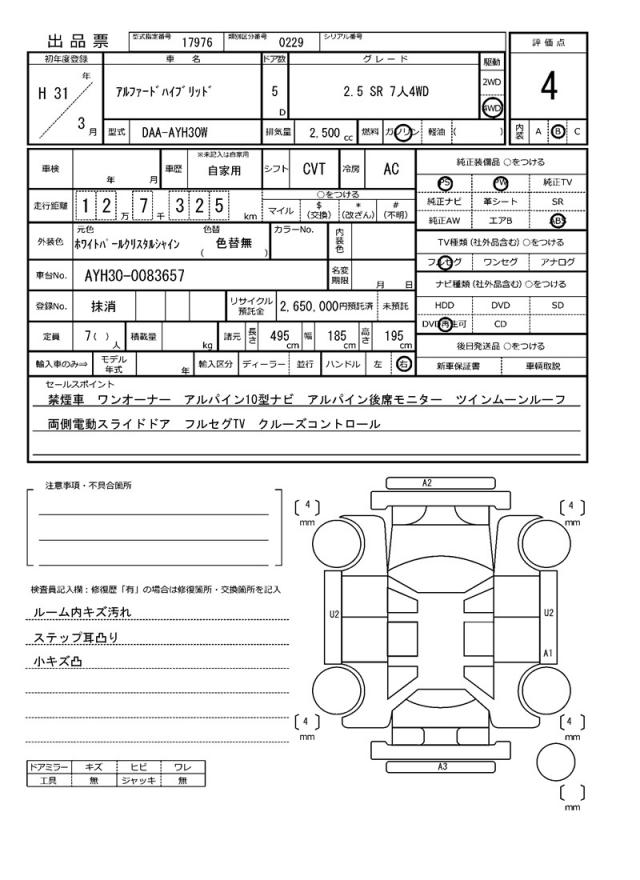 出品票 型式指定番号 17976 類別区分番号 0229 シリアル番号
評価点
4
内装 A B C
初年度登録 車名 ドア数 グレード 駆動
H 31 年 3 月 アルファードハイブリッド 5 D 2.5 SR 7人4WD 2WD 4WD
型式 DAA-AYH30W 排気量 2,500 cc 燃料 ガソリン 軽油 ( )
車検 年 月 車歴 ※未記入は自家用 自家用 シフト CVT 冷房 AC
走行距離 1 2 万 7 千 3 2 5 km ○をつける マイル $(交換) *(改ざん) #(不明)
外装色 元色 ホワイトパールクリスタルシャイン 色替 ( 色替無 ) カラーNo. 内装色
車台No. AYH30-0083657 名変期限 月 日
登録No. 抹消 リサイクル預託金 2,650,000円預託済 未預託
定員 7( ) 人 積載量 kg 諸元 長さ 495 cm 幅 185 cm 高さ 195 cm
輸入車のみ⇒ モデル年式 年 輸入区分 ディーラー 並行 ハンドル 左 右
純正装備品 ○をつける
PS PW 純正TV
純正ナビ 革シート SR
純正AW エアB ABS
TV種類(社外品含む)○をつける
フルセグ ワンセグ アナログ
ナビ種類(社外品含む)○をつける
HDD DVD SD
DVD再生可 CD
後日発送品 ○をつける
新車保証書 車輌取説
セールスポイント
禁煙車 ワンオーナー アルパイン10型ナビ アルパイン後席モニター ツインムーンルーフ
両側電動スライドドア フルセグTV クルーズコントロール
注意事項・不具合箇所
検査員記入欄:修復歴「有」の場合は修復箇所・交換箇所を記入
ルーム内キズ汚れ
ステップ耳凸り
小キズ凸
ドアミラー キズ ヒビ ワレ
工具 無 ジャッキ 無
A2
〔 4 〕 mm
〔 4 〕 mm
U2
U2
A1
〔 4 〕 mm
〔 4 〕 mm
A3
〔 〕 mm